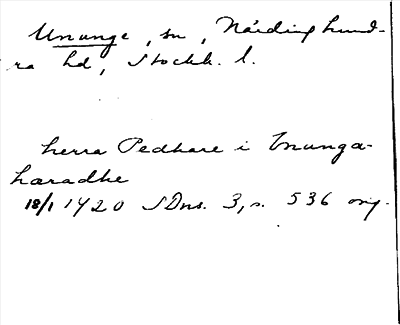 Ununge, sn, Närdinghund-
ra hd, Stockh. l.
herra Pedhare i Vnunga-
haradhe
18/1 1420 SDns. 3, s. 536 orig.